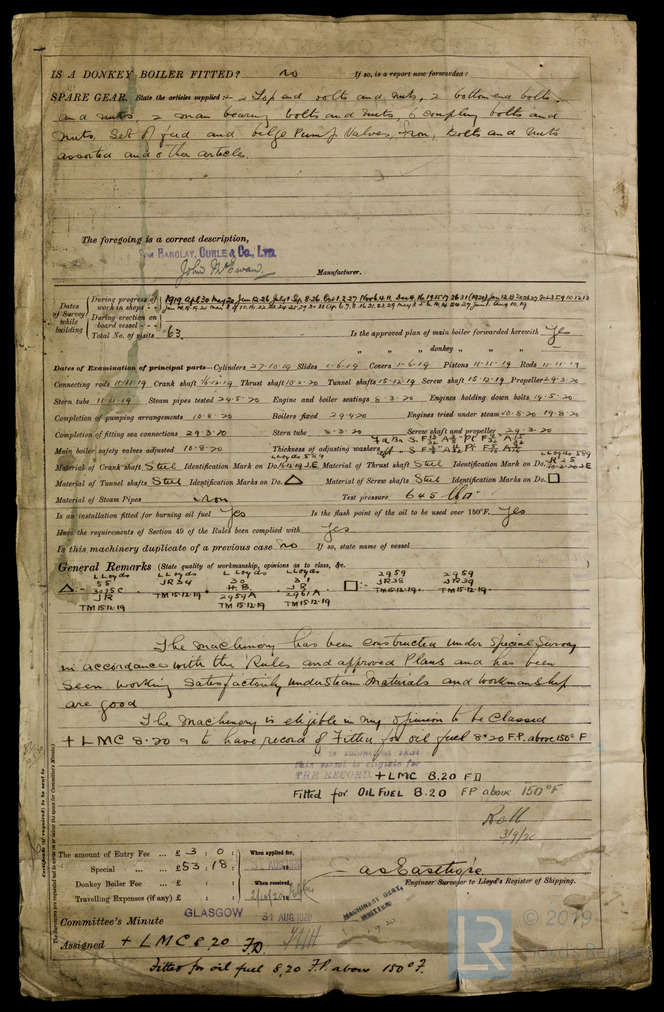 IS A DONKEY BOILER FITTED? no If so, is a report now forwarded?
SPARE GEAR. State the articles supplied:- 2 Top end bolts and nuts, 2 bottom end bolts
and nuts, 2 main bearing bolts and nuts, 6 coupling bolts and
nuts, Set of feed and bilge Pump Valves, Iron, bolts and nuts
assorted and other article.
The foregoing is a correct description,
BARCLAY, CURLE & CO., LTD.
John McEwan Manufacturer.
Dates of Survey while building
During progress of work in shops - -
During erection on board vessel - - -
Total No. of visits 63.
Is the approved plan of main boiler forwarded herewith Yes
" " " donkey " " "
Dates of Examination of principal parts—Cylinders 27-10-19 Slides 1-6-19 Covers 1-6-19 Pistons 11-11-19 Rods 11-11-19
Connecting rods 11-11-19 Crank shaft Thrust shaft 10-2-20 Tunnel shafts 15-12-19 Screw shaft 15-12-19 Propeller 29-3-20
Stern tube 11-11-19 Steam pipes tested 24-5-20 Engine and boiler seatings 8-3-20 Engines holding down bolts 14-5-20
Completion of pumping arrangements 10-8-20 Boilers fixed 29-4-20 Engines tried under steam 10-8-20 19-8-20
Completion of fitting sea connections 29-3-20 Stern tube 8-3-20 Screw shaft and propeller 29-3-20
Main boiler safety valves adjusted 10-8-20 Thickness of adjusting washers
Material of Crank shaft Steel Identification Mark on Do. Material of Thrust shaft Steel Identification Mark on Do.
Material of Tunnel shafts Steel Identification Marks on Do. △ Material of Screw shaft Steel Identification Marks on Do. □
Material of Steam Pipes Iron Test pressure 645 lbs
Is an installation fitted for burning oil fuel Yes Is the flash point of the oil to be used over 150°F. Yes
Have the requirements of Section 49 of the Rules been complied with Yes
Is this machinery duplicate of a previous case no If so, state name of vessel
General Remarks (State quality of workmanship, opinions as to class, &c.
LLoyds LLoyds LLoyds LLoyds 2959 2959
△ - 55 JR34 30 31 □:- JR38 JR39
3025C TM15-12-19 H.B JR TM15-12-19 TM15-12-19
JR 2959A 2961A
TM15-12-19 TM15-12-19 TM15-12-19
The machinery has been constructed under Special Survey
in accordance with the Rules and approved Plans and has been
seen working satisfactorily under steam Materials and workmanship
are good
The machinery is eligible in my opinion to be classed
+ LMC 8.20 & to have record of Fitted for oil fuel 8.20 F.P. above 150° F
is submitted that
this vessel is eligible for
THE RECORD. + LMC 8.20 FD
Fitted for OIL FUEL 8.20 FP above 150°F
3/9/20
Certificate (if required) to be sent to
The amount of Entry Fee ... £ 3 : 0 : When applied for,
Special ... £ 53 : 18 : 31 AUG 1920
Donkey Boiler Fee ... £ : : When received,
Travelling Expenses (if any) £ : :
Engineer Surveyor to Lloyd's Register of Shipping.
Committee's Minute GLASGOW 31 AUG. 1920
MACHINERY CERT. WRITTEN
Assigned + LMC 8,20 F.D.
Fitted for oil fuel 8,20 F.P. above 150° F.
LR © 2019
Lloyd's Register